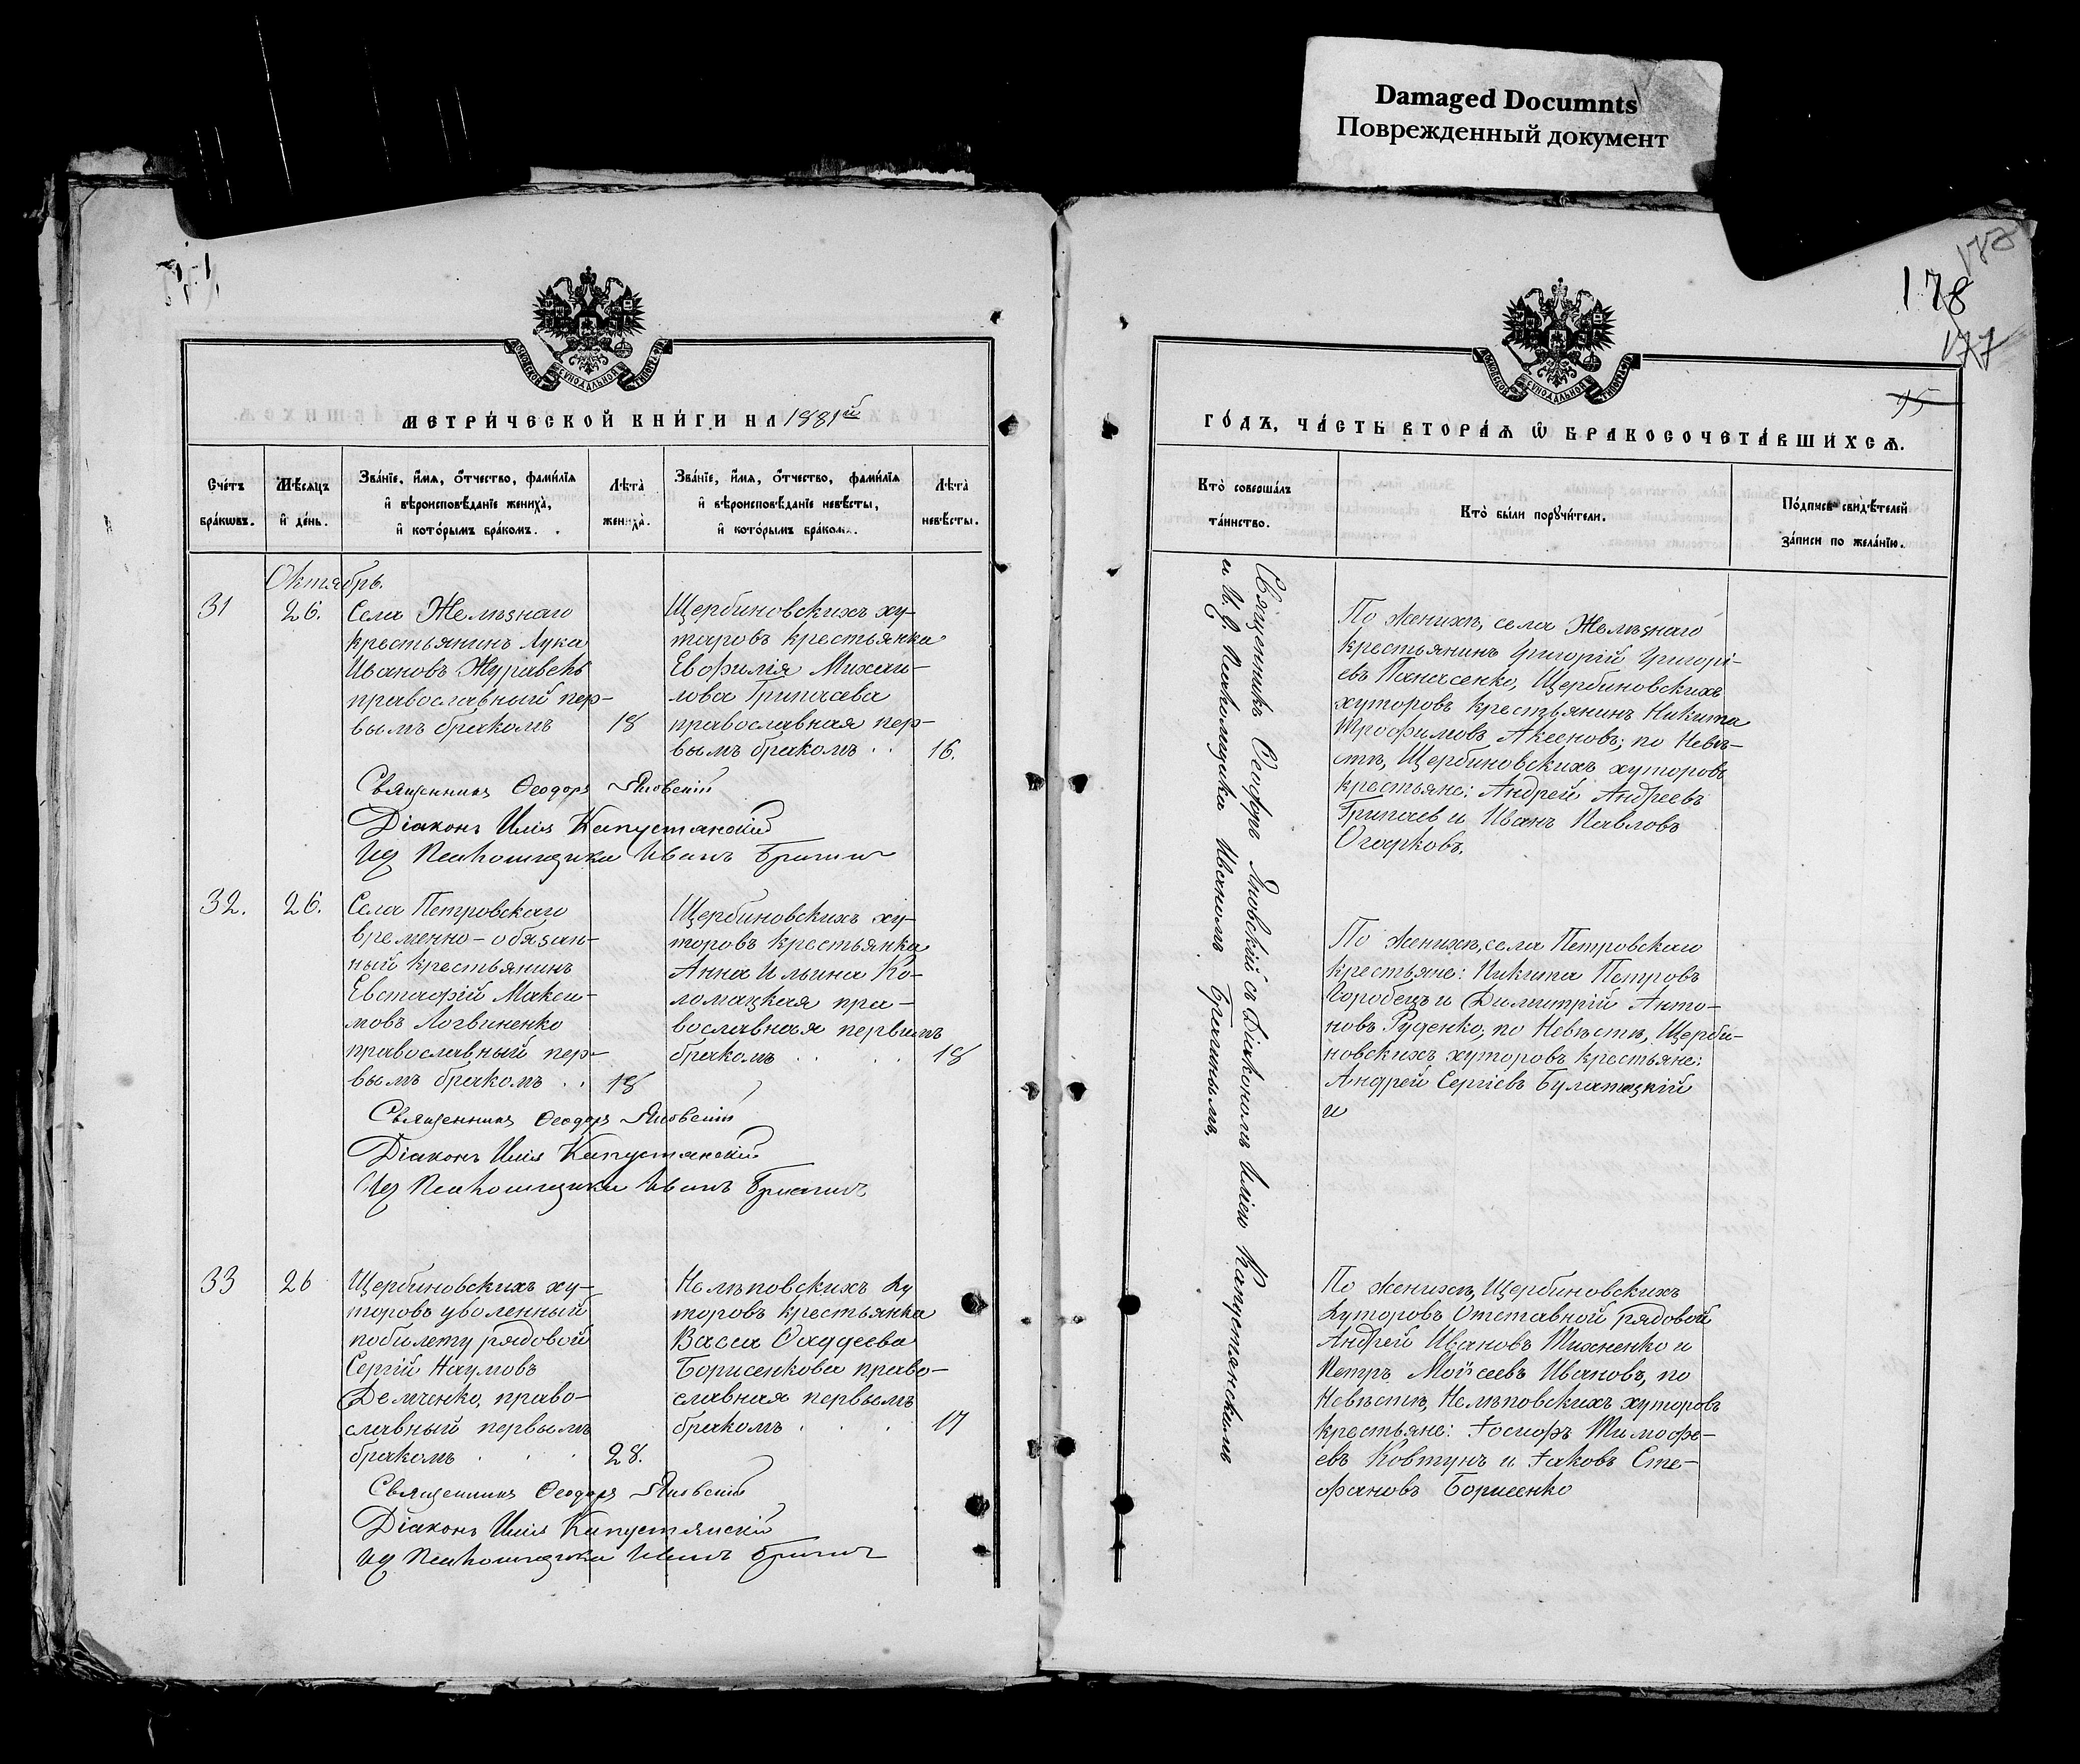 Damaged Documnts
Поврежденный документ
178
177
95
МЕТРИ́ЧЕСКОЙ КНИ́ГИ НА 1881й
Сче́тъ бра́кωвъ.
Мѣ́сяцъ и҆ де́нь.
Зва́нїе, и҆́мя, ѻ҆́тчество, фами́лїя
и҆ вѣроисповѣ́данїе жениха̀,
и҆ кото́рымъ бра́комъ.
Лѣ́та̀ жениха̀.
Зва́нїе, и҆́мя, ѻ҆́тчество, фами́лїя
и҆ вѣроисповѣ́данїе невѣ́сты,
и҆ кото́рымъ бра́комъ.
Лѣ́та̀ невѣ́сты.
Октябрь.
31
26.
Села Желѣзнаго
крестьянинъ Лука
Ивановъ Журавель
православный пер-
вымъ бракомъ
18
Щербиновскихъ ху-
торовъ крестьянка
Евфимія Михаи-
лова Грипасева
православная пер-
вымъ бракомъ . .
16.
Священникъ Ѳеодоръ Яновскій
Діаконъ Илія Капустянскій
ИД Псаломщика Иванъ Брагинъ
32.
26.
Села Петровскаго
временно-обязан-
ный крестьянинъ
Евстафій Макси-
мовъ Логвиненко
православный пер-
вымъ бракомъ . .
18
Щербиновскихъ ху-
торовъ крестьянка
Анна Ильина Ко-
ломацкая пра-
вославная первымъ
бракомъ . . .
18
Священникъ Ѳеодоръ Яновскій
Діаконъ Илія Капустянскій
ИД Псаломщика Иванъ Брагинъ
33
26
Щербиновскихъ ху-
торовъ уволенный
по билету рядовой
Сергій Наумовъ
Демченко, право-
славный первымъ
бракомъ . . .
28.
Нелѣповскихъ ху
торовъ крестьянка
Васса Ѳаддеева
Борисенкова право-
славная первымъ
бракомъ . . .
17
Священникъ Ѳеодоръ Яновскій
Діаконъ Илія Капустянскій
ИД Псаломщика Иванъ Брагинъ
ГО́ДЪ, ЧА́СТЬ ВТОРА́Ѧ Ѽ БРАКОСОЧЕТА́ВШИХСѦ.
Кто̀ соверша́лъ
та́инство.
Кто̀ бы́ли порꙋчи́тели.
По́дпись свидѣ́телей
за́писи по жела́нїю.
Священникъ Ѳеодоръ Яновскій съ Діакономъ Иліею Капустянскимъ
и И. Д. Псаломщика Иваномъ Брагинымъ.
По женихѣ, села Желѣзнаго
крестьянинъ Григорій Григорі-
евъ Панасенко, Щербиновскихъ
хуторовъ крестьянинъ Никита
Трофимовъ Аксеновъ; по невѣ-
стѣ, Щербиновскихъ хуторовъ
крестьяне: Андрей Андреевъ
Грипасев и Иванъ Павловъ
Огарковъ.
По женихѣ, села Петровскаго
крестьяне: Никита Петровъ
Горобецъ и Димитрій Анто-
новъ Руденко, по невѣстѣ, Щерби-
новскихъ хуторовъ крестьяне:
Андрей Сергіевъ Булатецкій
и
По женихѣ, Щербиновскихъ
хуторовъ Отставной рядовой
Андрей Ивановъ Тихненко и
Петръ Моѵсеевъ Ивановъ, по
невѣстѣ, Нелѣповскихъ хуторовъ
крестьяне: Іосифъ Тимофе-
евъ Ковтунъ и Іаковъ Сте-
фановъ Борисенко